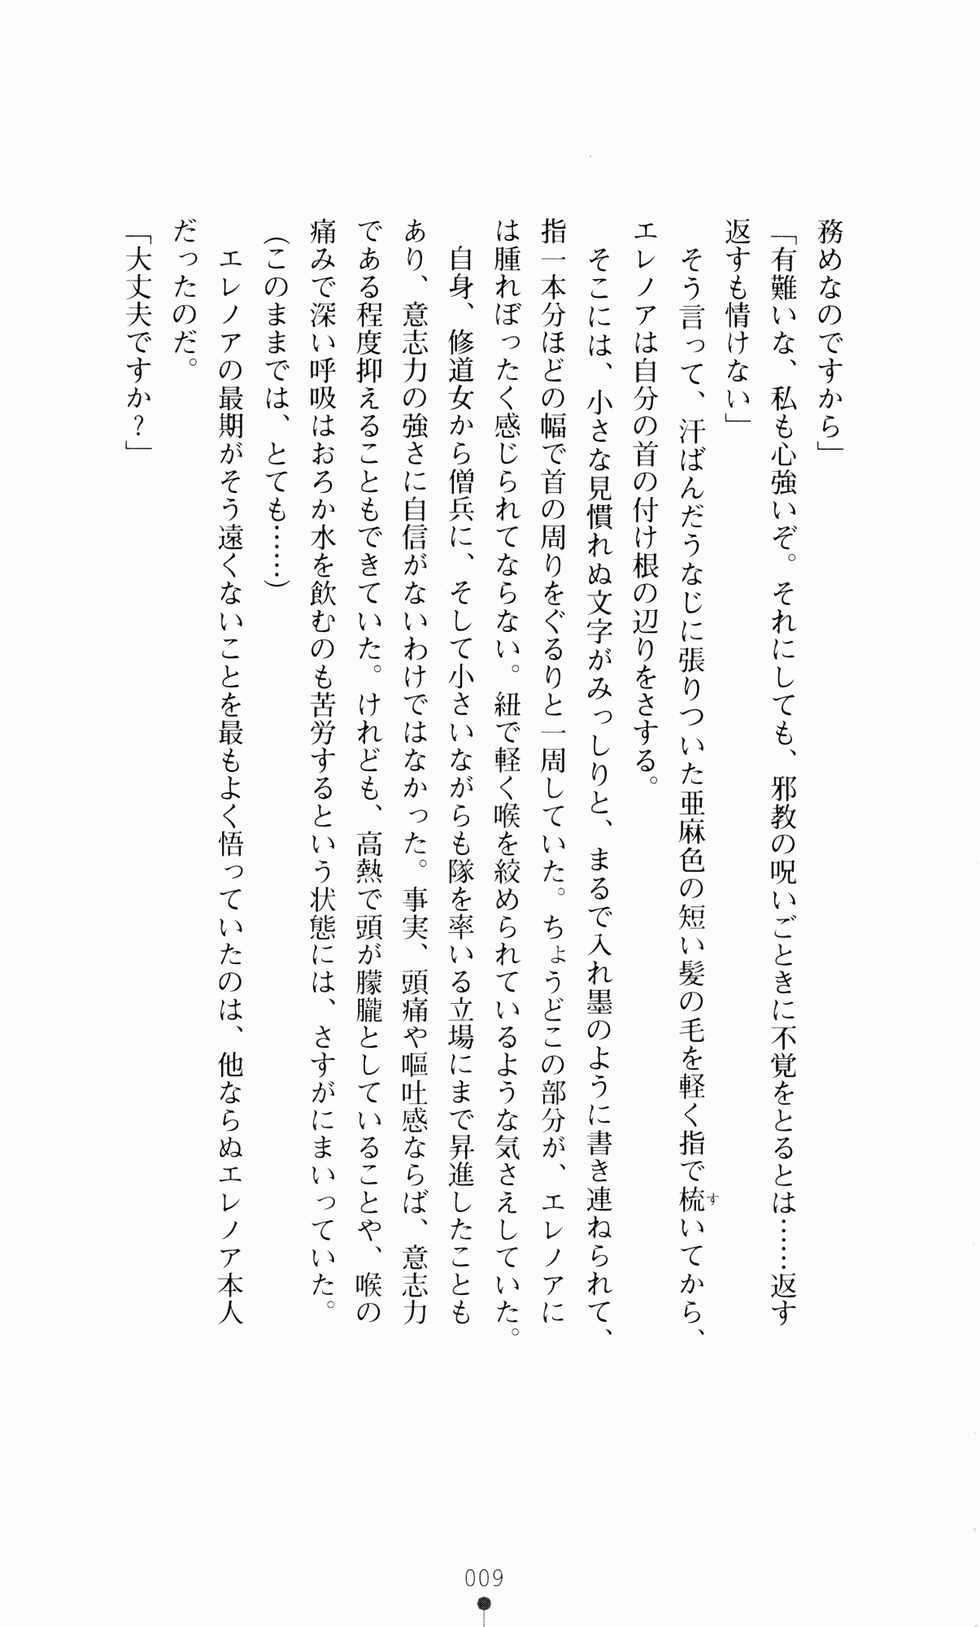 務めなのですから」
「有難いな、私も心強いぞ。それにしても、邪教の呪いごときに不覚をとるとは……返す
返すも情けない」
そう言って、汗ばんだうなじに張りついた亜麻色の短い髪の毛を軽く指で梳いてから、
す
エレノアは自分の首の付け根の辺りをさする。
そこには、小さな見慣れぬ文字がみっしりと、まるで入れ墨のように書き連ねられて、
指一本分ほどの幅で首の周りをぐるりと一周していた。ちょうどこの部分が、エレノアに
は腫れぼったく感じられてならない。紐で軽く喉を絞められているような気さえしていた。
自身、修道女から僧兵に、そして小さいながらも隊を率いる立場にまで昇進したことも
あり、意志力の強さに自信がないわけではなかった。事実、頭痛や嘔吐感ならば、意志力
である程度抑えることもできていた。けれども、高熱で頭が朦朧としていることや、喉の
痛みで深い呼吸はおろか水を飲むのも苦労するという状態には、さすがにまいっていた。
（このままでは、とても……）
エレノアの最期がそう遠くないことを最もよく悟っていたのは、他ならぬエレノア本人
だったのだ。
「大丈夫ですか？」
009